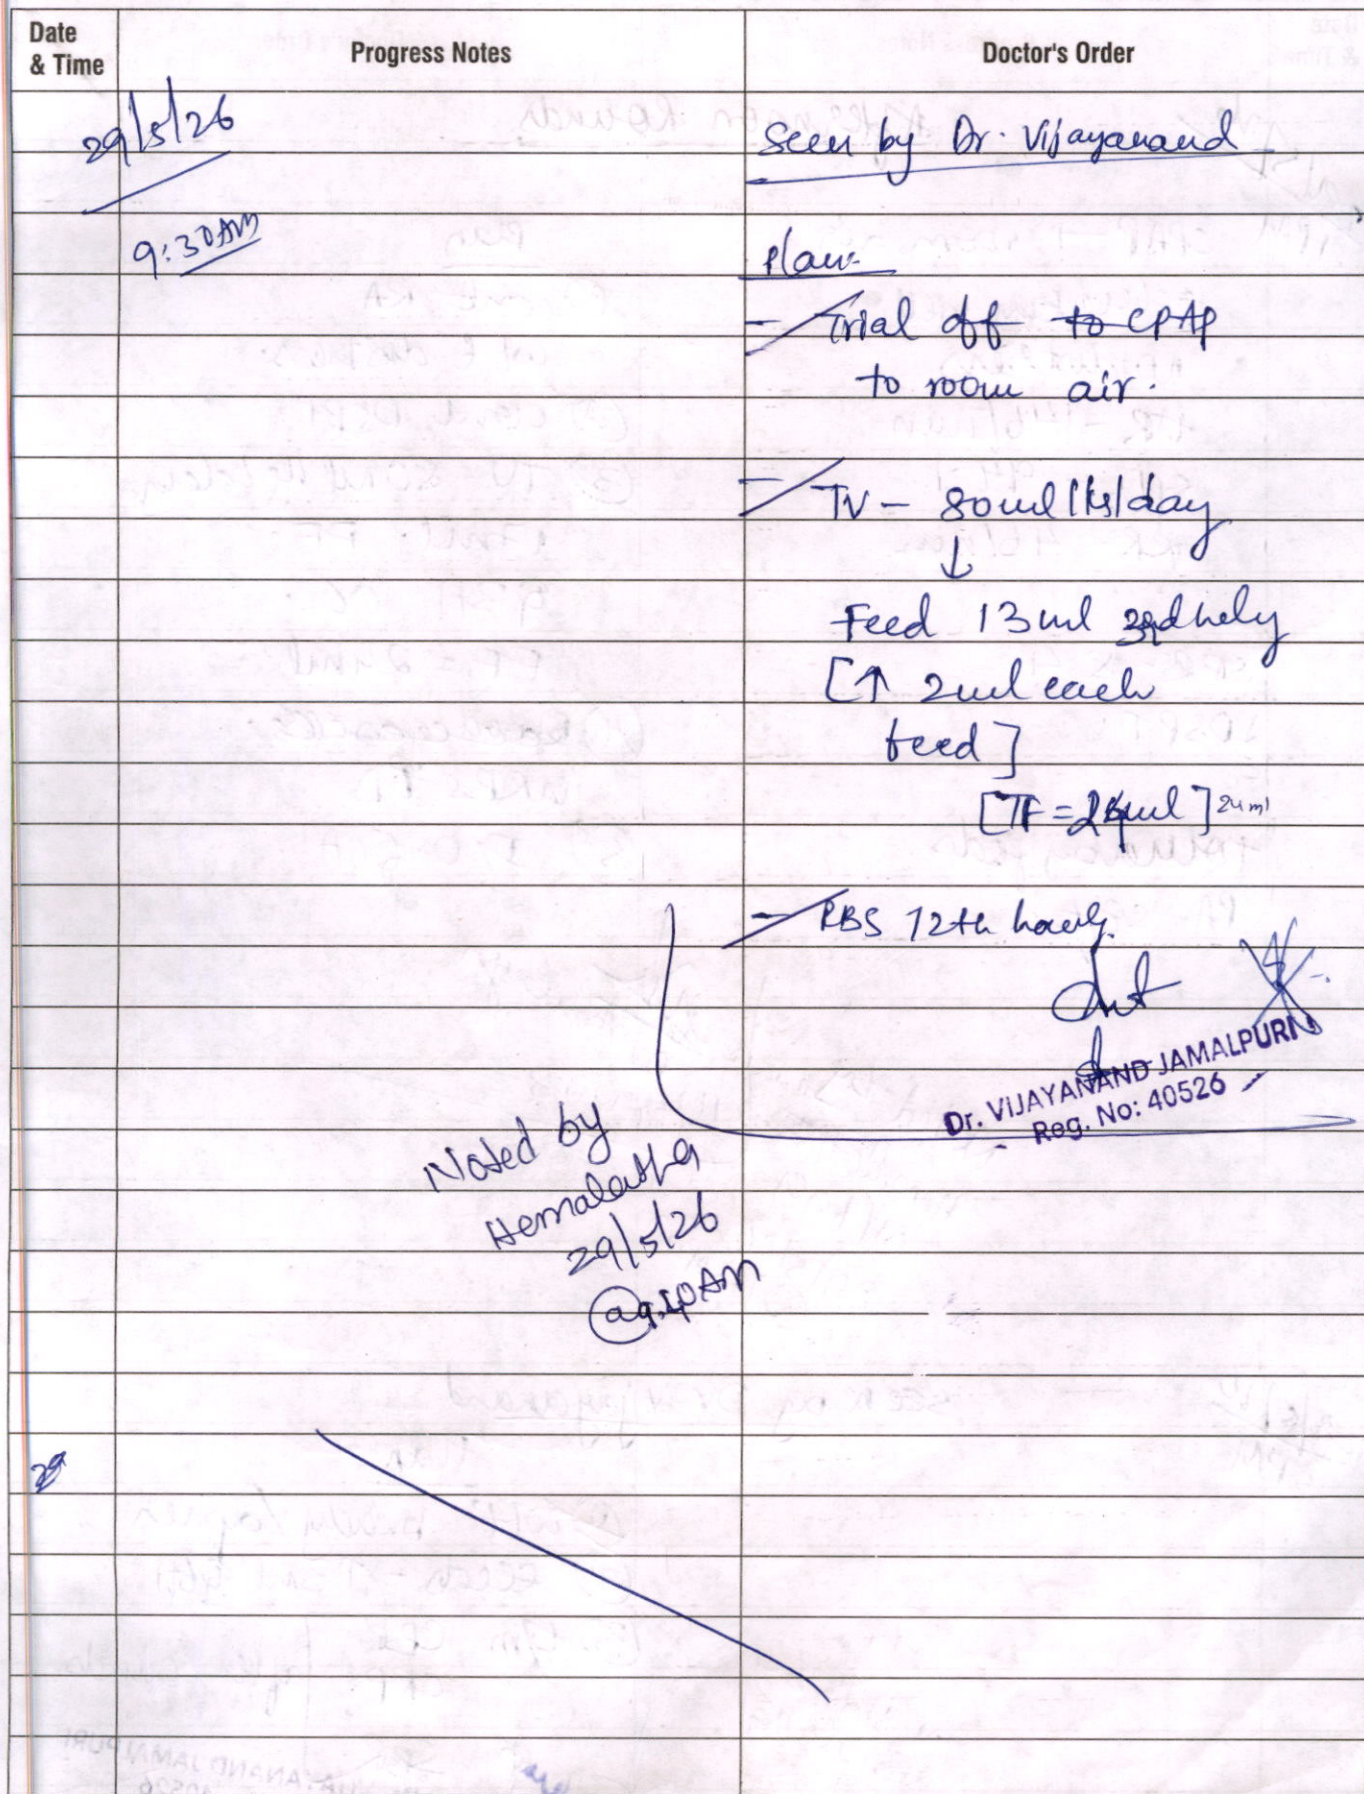 Date
& Time
Progress Notes
Doctor's Order
29/5/26
9:30AM
Seen by Dr. Vijayanand
Plan:
- Trial off to CPAP
to room air.
- TV - 80ml/kg/day
↓
Feed 13ml hrly
[↑ 2ml each
feed]
[TF = ml] 24ml
- RBS 12th hourly.
Dr. VIJAYANAND JAMALPURI
Reg. No: 40526
Noted by
Hemalatha
29/5/26
@ AM
29